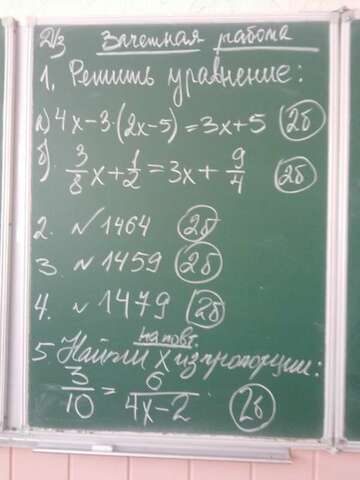 Д/з Зачетная работа
1. Решить уравнение:
а) 4x-3·(2x-5)=3x+5 2б
б). 3/8 x + 1/2 = 3x + 9/4 2б
2. №1464 2б
3. №1459 2б
4. №1479 2б
на повт.
5 Найти x из пропорции:
3/10 = 6/4x-2 2б